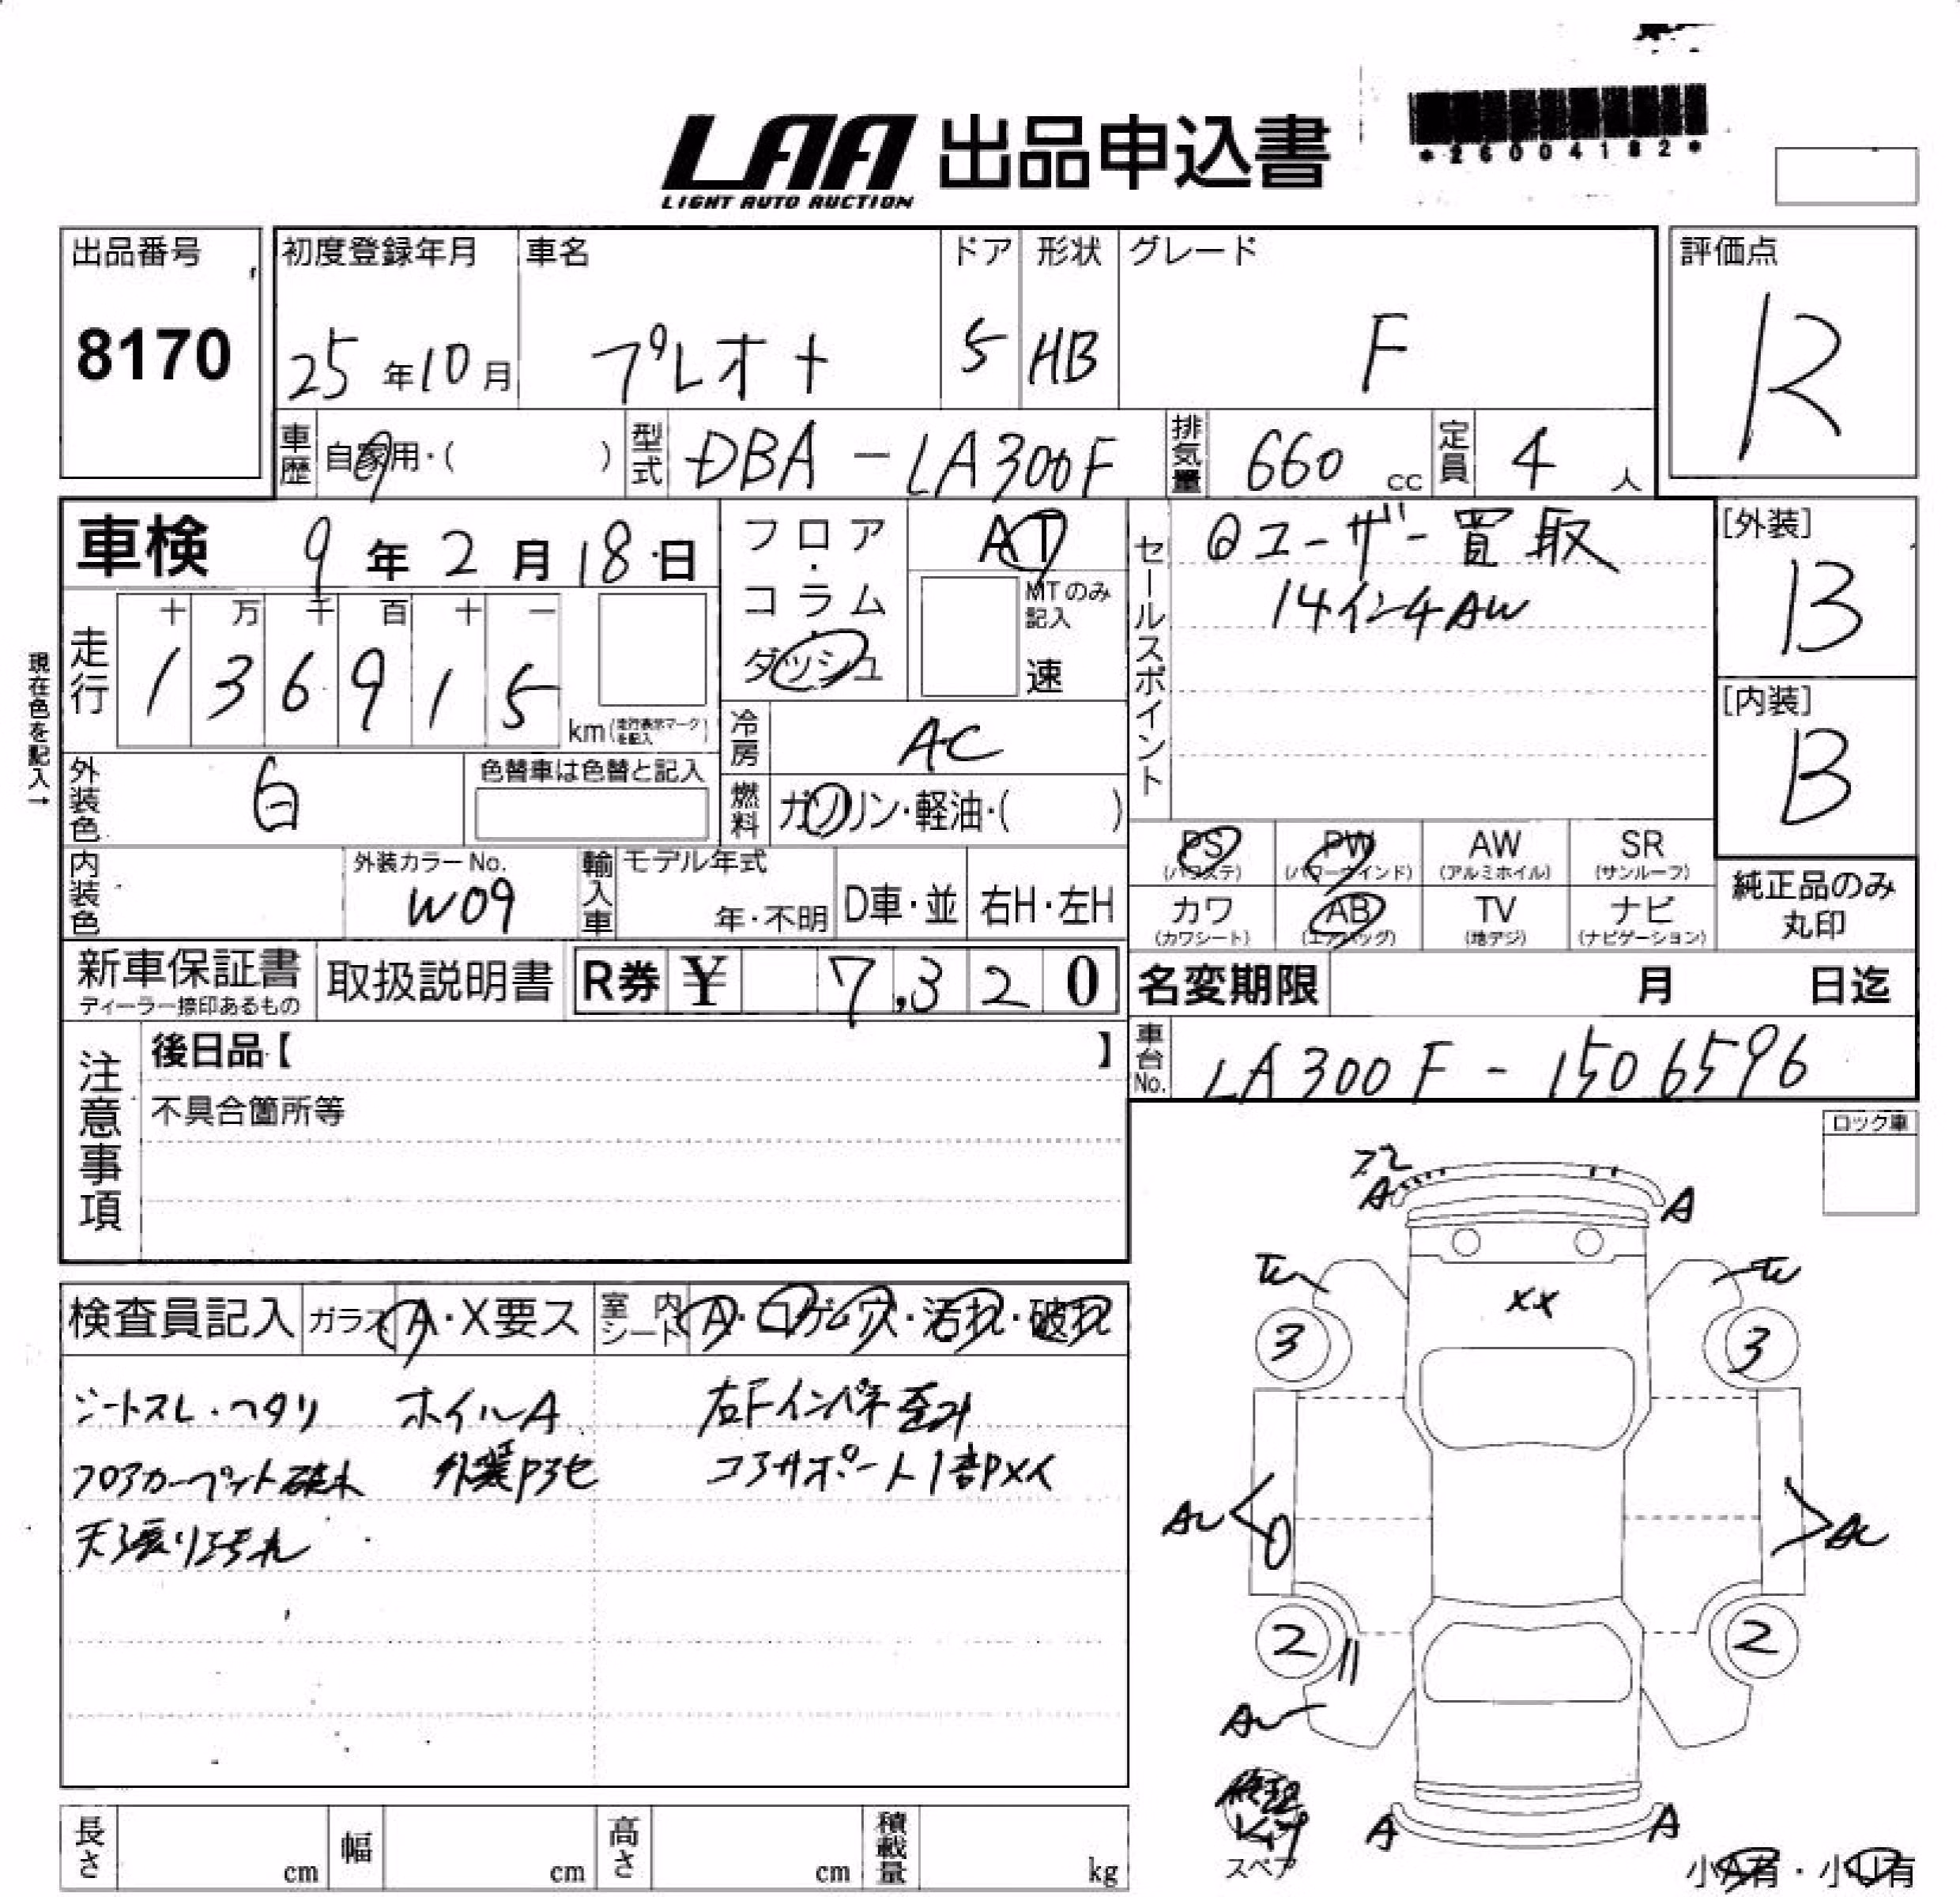 LAA 出品申込書
LIGHT AUTO AUCTION
*26004182*
出品番号
8170
初度登録年月
25年10月
車名
プレオ+
ドア
5
形状
HB
グレード
F
評価点
R
車歴
自家用・( )
型式
DBA-LA300F
排気量
660 cc
定員
4 人
車検 9年2月18日
フロア・コラム・ダッシュ
AT
MTのみ記入
速
セールスポイント
ユーザー買取
14インチAW
[外装]
B
[内装]
B
現在色を記入→
走行
十 万 千 百 十 一
1 3 6 9 1 5
km(走行表示マークを記入)
冷房
AC
外装色
白
色替車は色替と記入
燃料
ガソリン・軽油・( )
内装色
外装カラーNo.
W09
輸入車
モデル年式
年・不明
D車・並
右H・左H
PS
(パワステ)
PW
(パワーウインド)
AW
(アルミホイル)
SR
(サンルーフ)
カワ
(カワシート)
AB
(エアバッグ)
TV
(地デジ)
ナビ
(ナビゲーション)
純正品のみ
丸印
新車保証書
ディーラー捺印あるもの
取扱説明書
R券 ¥ 7,320
名変期限 月 日迄
車台No.
LA300F-1506596
注意事項
後日品【 】
不具合箇所等
ロック車
検査員記入
ガラス
A・X要ス
室内シート
A・コゲ・穴・汚れ・破れ
シートスレ・ヘタリ ホイルA 右Fインパネ歪み
フロアカーペット 外装 コアサポート1部
天張り
A A
XX
3 3
2 2
A A
スペア
小A有・小U有
長さ cm
幅 cm
高さ cm
積載量 kg